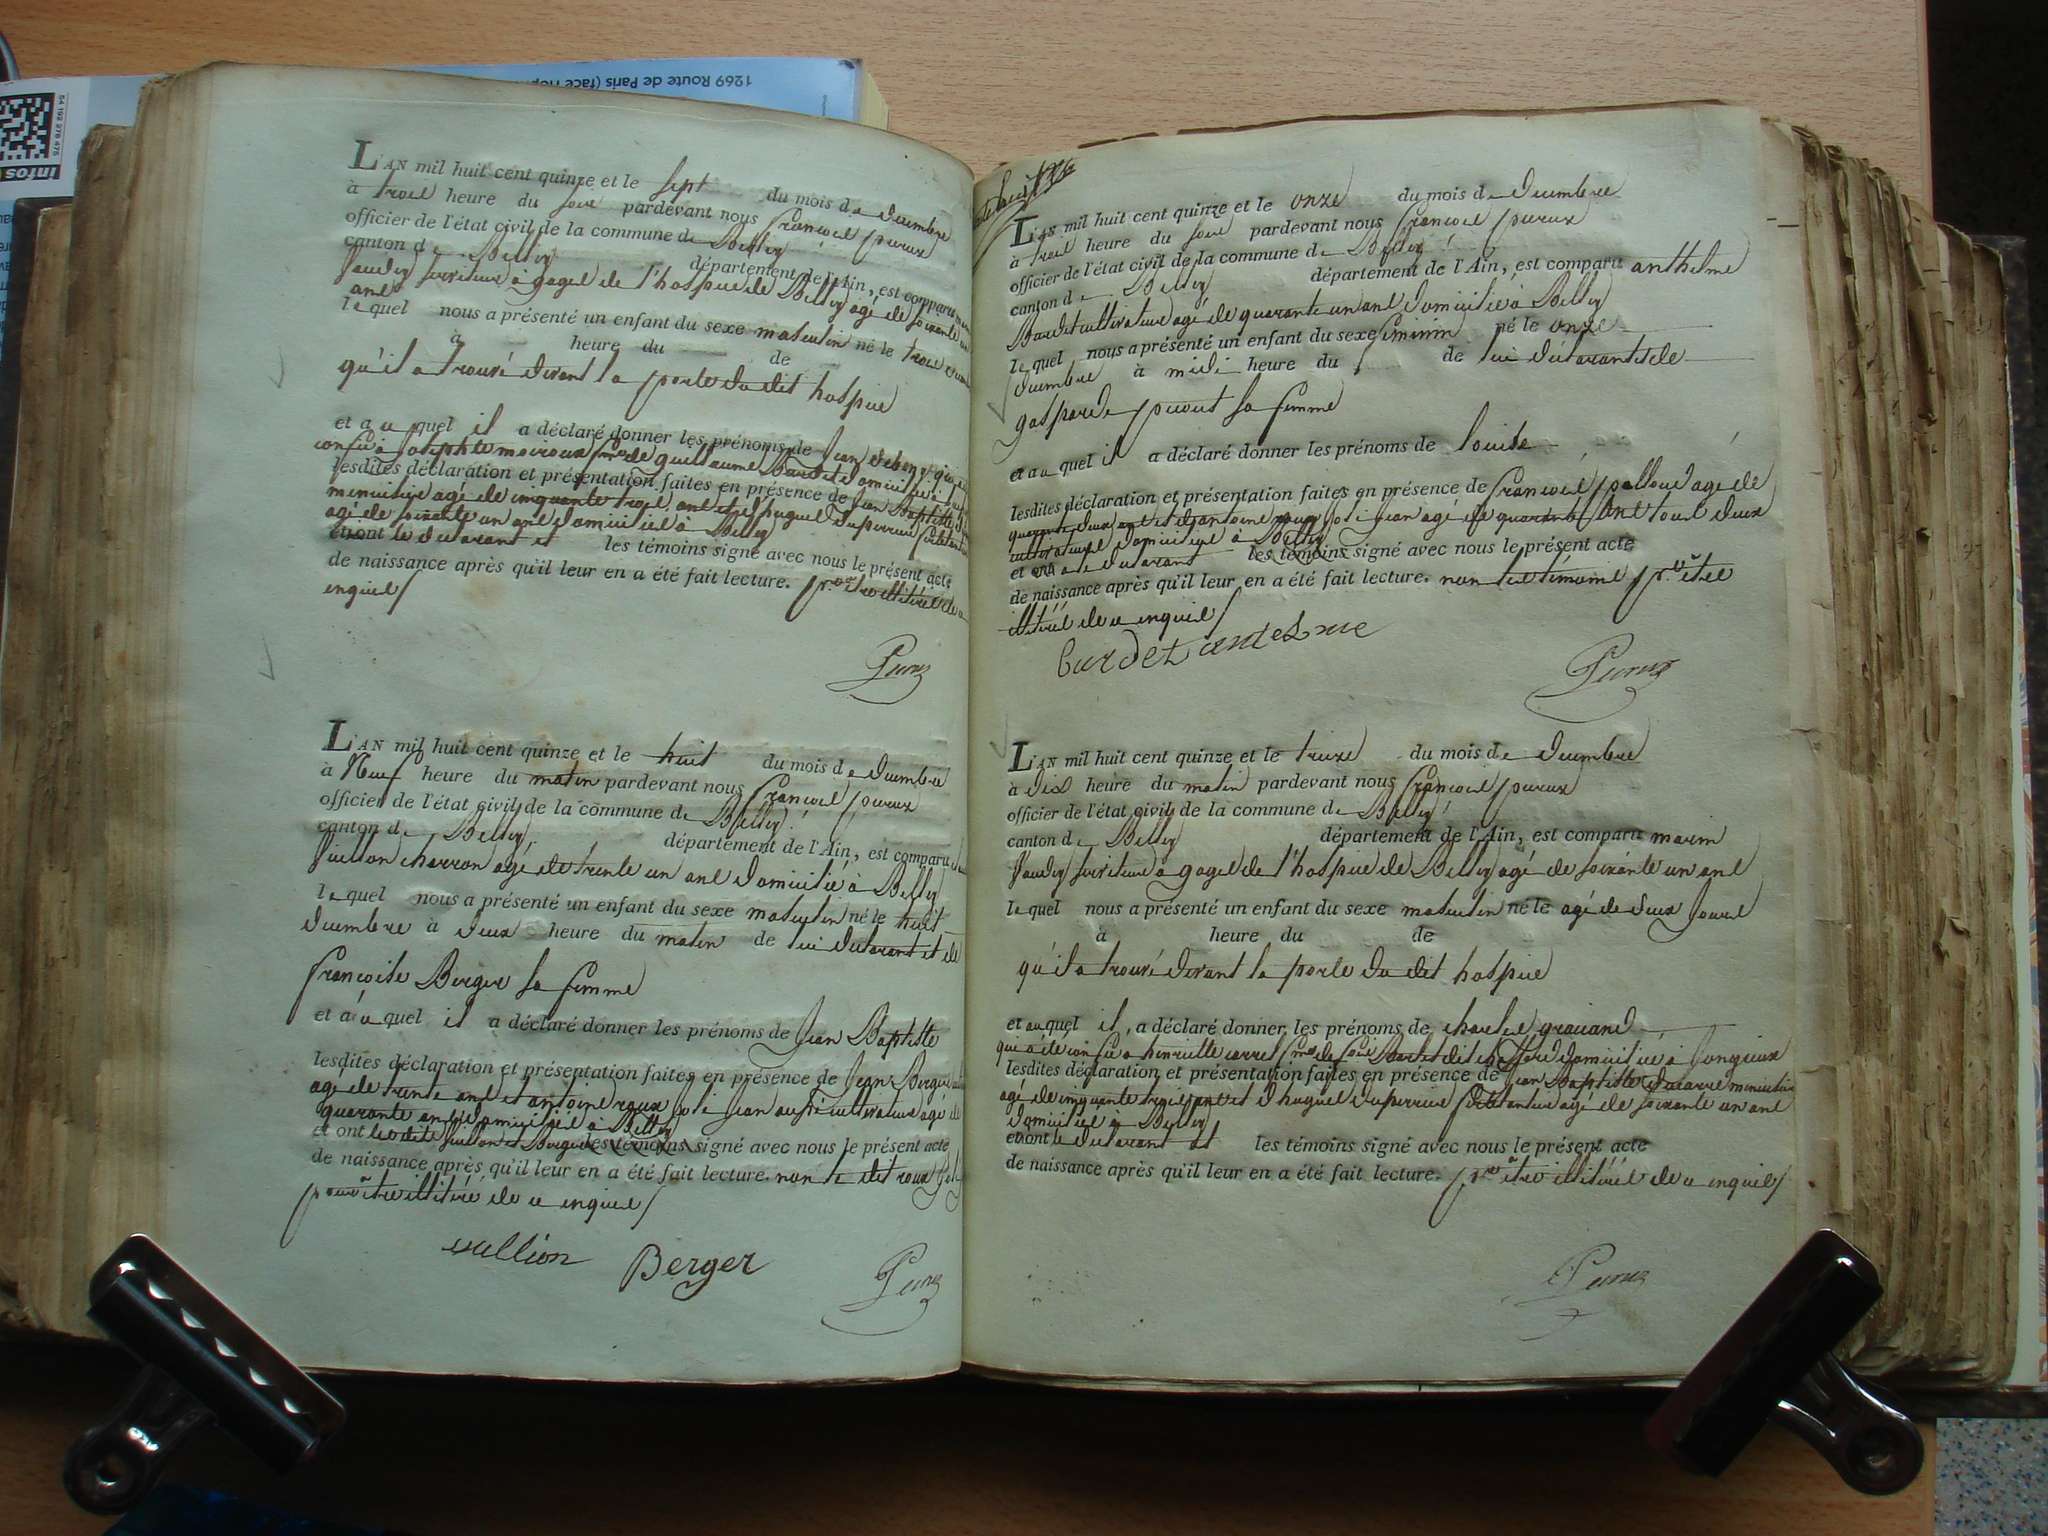 1269 Route de Paris (face
54 192 278 475
infos
L'AN mil huit cent quinze et le sept du mois de Decembre
à trois heure du soir pardevant nous francois pereux
officier de l'état civil de la commune de Belley
canton de Belley département de l'Ain, est comparu
serviteur à gages de l'hospice de Belley agé de soixante un
ans
lequel nous a présenté un enfant du sexe masculin né le trois
à heure du de
qu'il a trouvé devant la porte du dit hospice
et auquel il a déclaré donner les prénoms de Jean
confié à Josephte fme de Guillaume domicilié à
lesdites déclaration et présentation faites en présence de Jean Baptiste
menuisier agé de cinquante trois ans et d'hugues duperrier
agé de soixante un ans domiciliés à Belley
et ont le déclarant et les témoins signé avec nous le présent acte
de naissance après qu'il leur en a été fait lecture. pr être illitérés de ce
enquis
L'AN mil huit cent quinze et le huit du mois de Decembre
à Neuf heure du matin pardevant nous francois pereux
officier de l'état civil de la commune de Belley
canton de Belley département de l'Ain, est comparu
charron agé de trente un ans domicilié à Belley
lequel nous a présenté un enfant du sexe masculin né le huit
decembre à deux heure du matin de lui déclarant et de
francoise Berger sa femme
et auquel il a déclaré donner les prénoms de Jean Baptiste
lesdites déclaration et présentation faites en présence de Jean Berger
agé de trente ans et antoine roux feu jean aussi cultivateur agé de
quarante ans domiciliés à Belley
et ont Berger les témoins signé avec nous le présent acte
de naissance après qu'il leur en a été fait lecture. non le dit roux
pour être illitéré de ce enquis
vullion Berger
L'AN mil huit cent quinze et le onze du mois de Decembre
à trois heure du soir pardevant nous francois pereux
officier de l'état civil de la commune de Belley
canton de Belley département de l'Ain, est comparu anthelme
Bardet cultivateur agé de quarante un ans domicilié à Belley
lequel nous a présenté un enfant du sexe féminin né le onze
decembre à midi heure du de lui déclarant et de
gasparde sa femme
et auquel il a déclaré donner les prénoms de louise
lesdites déclaration et présentation faites en présence de francois palloud agé de
quarante deux ans et d'antoine roux feu jean agé de quarante ans tous deux
cultivateurs domiciliés à Belley
et ont le déclarant les témoins signé avec nous le présent acte
de naissance après qu'il leur en a été fait lecture. non les témoins pr être
illitérés de ce enquis
bardet antelme
L'AN mil huit cent quinze et le treize du mois de Decembre
à dix heure du matin pardevant nous francois pereux
officier de l'état civil de la commune de Belley
canton de Belley département de l'Ain, est comparu marin
serviteur à gages de l'hospice de Belley agé de soixante un ans
lequel nous a présenté un enfant du sexe masculin né le agé de deux jours
à heure du de
qu'il a trouvé devant la porte du dit hospice
et auquel il a déclaré donner les prénoms de charles
qui a été confié a henriette carrel fme de dit domicilié à Jongieux
lesdites déclaration et présentation faites en présence de Jean Baptiste menuisier
agé de cinquante trois ans et d'hugues duperrier agé de soixante un ans
domiciliés à Belley
et ont le déclarant et les témoins signé avec nous le présent acte
de naissance après qu'il leur en a été fait lecture. pr être illitérés de ce enquis